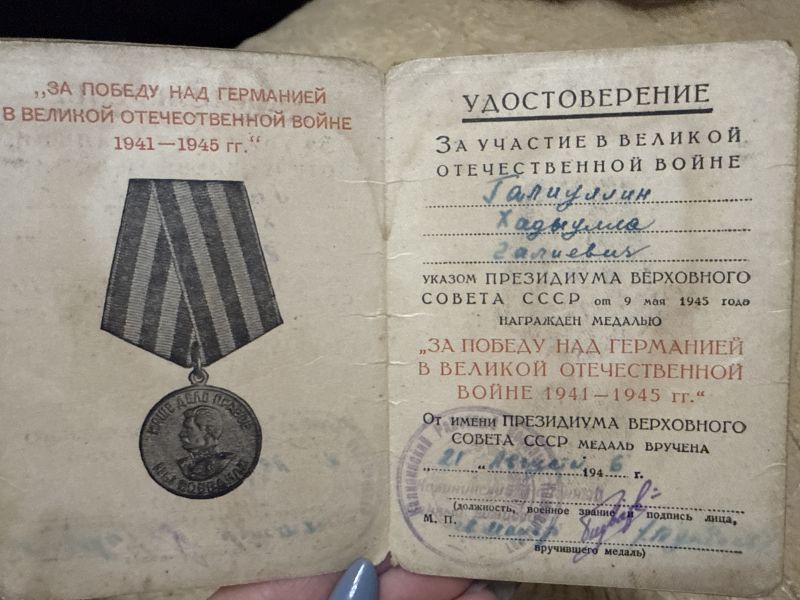 „ЗА ПОБЕДУ НАД ГЕРМАНИЕЙ
В ВЕЛИКОЙ ОТЕЧЕСТВЕННОЙ ВОЙНЕ
1941—1945 гг.“
НАШЕ ДЕЛО ПРАВОЕ
МЫ ПОБЕДИЛИ
УДОСТОВЕРЕНИЕ
ЗА УЧАСТИЕ В ВЕЛИКОЙ
ОТЕЧЕСТВЕННОЙ ВОЙНЕ
Галиуллин
Хадыулла
Галиевич
УКАЗОМ ПРЕЗИДИУМА ВЕРХОВНОГО
СОВЕТА СССР от 9 мая 1945 года
НАГРАЖДЕН МЕДАЛЬЮ
„ЗА ПОБЕДУ НАД ГЕРМАНИЕЙ
В ВЕЛИКОЙ ОТЕЧЕСТВЕННОЙ
ВОЙНЕ 1941—1945 гг.“
ОТ ИМЕНИ ПРЕЗИДИУМА ВЕРХОВНОГО
СОВЕТА СССР МЕДАЛЬ ВРУЧЕНА
„21“ Августа 1946 г.
(должность, военное звание и подпись лица,
М. П.
майор
вручившего медаль)